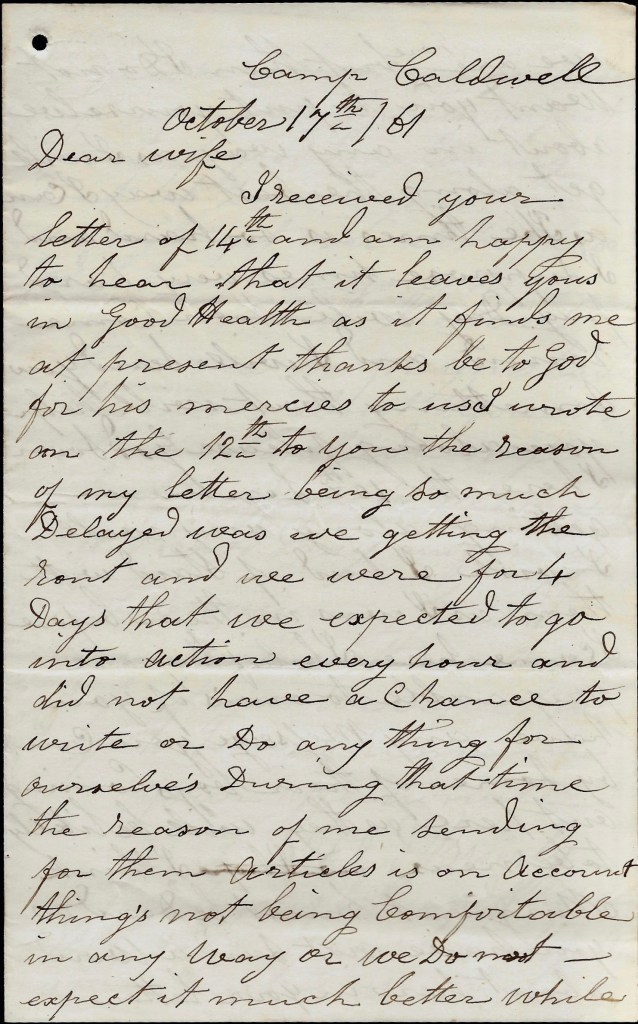 Camp Caldwell
October 17th / 61
Dear wife
I received your
letter of 14th and am happy
to hear that it leaves yous
in Good Health as it finds me
at present thanks be to God
for his mercies to us I wrote
on the 12th to you the reason
of my letter being so much
Delayed was we getting the
rout and we were for 4
Days that we expected to go
into action every hour and
did not have a Chance to
write or Do any thing for
ourselve's During that time
the reason of me sending
for them articles is on Account
thing's not being Comfortable
in any Way or we Do not —
expect it much better while